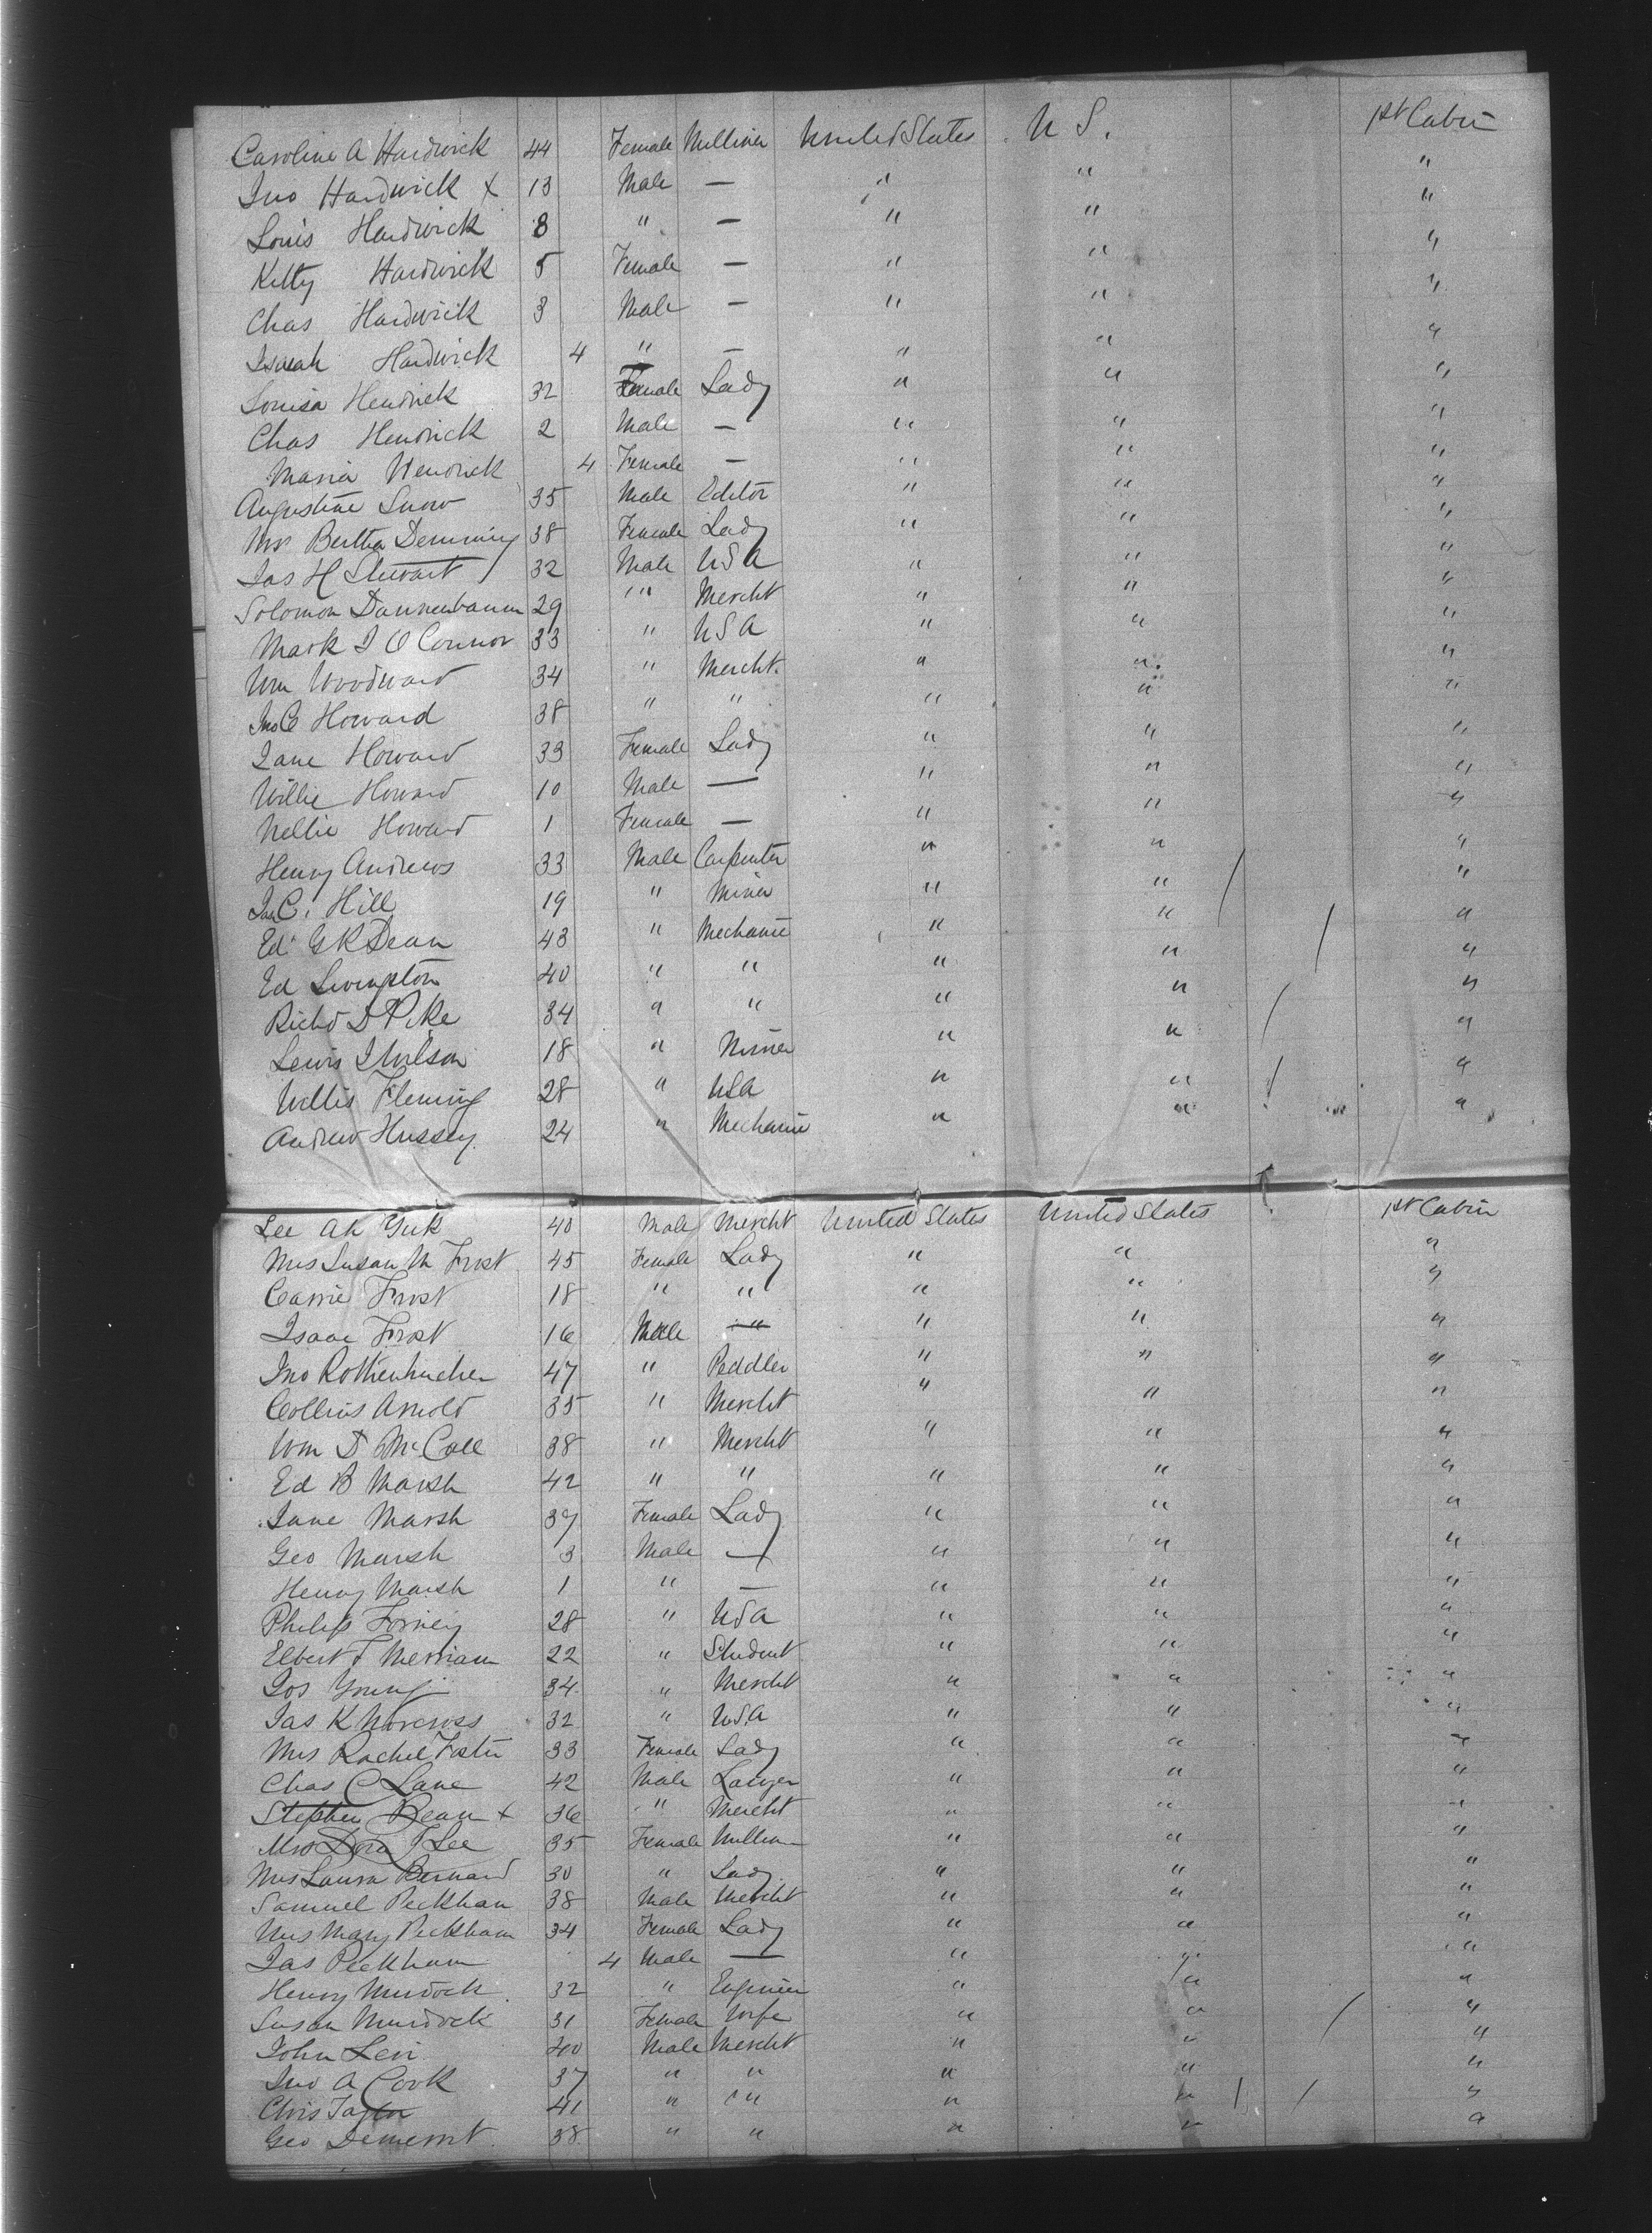 Caroline A Hardwick 44 Female Milliner United States U S. 1st Cabin
Jno Hardwick x 13 Male — " " "
Louis Hardwick 8 " — " " "
Kitty Hardwick 5 Female — " " "
Chas Hardwick 3 Male — " " "
Isaiah Hardwick 4 " — " " "
Louisa Hendrick 32 Female Lady " " "
Chas Hendrick 2 Male — " " "
Maria Hendrick 4 Female — " " "
Augustine Snow 35 Male Editor " " "
Mrs Bertha Demming 38 Female Lady " " "
Jas H Stewart 32 Male USA " " "
Solomon Dannenbaum 29 " Mercht " " "
Mark J O Connor 33 " USA " " "
Wm Woodward 34 " Mercht. " " "
Jno C Howard 38 " " " " "
Jane Howard 33 Female Lady " " "
Willie Howard 10 Male — " " "
Nellie Howard 1 Female — " " "
Henry Andrews 33 Male Carpenter " " "
C. Hill 19 " Miner " " "
Ed G K Dean 43 " Mechanic " " "
Ed Livingston 40 " " " " "
Richd D Pike 34 " " " " "
Lewis J Wilson 18 " Miner " " "
Willis Fleming 28 " USA " " "
Andrew Hussey 24 " Mechanic " " "
Lee Ah Yuk 40 Male Mercht United States United States 1st Cabin
Mrs Susan M Frost 45 Female Lady " " "
Carrie Frost 18 " " " " "
Isaac Frost 16 Male " " "
Jno 47 " Peddler " " "
Collins Arnold 35 " Mercht " " "
Wm D McCall 38 " Mercht " " "
Ed B Marsh 42 " " " " "
Jane Marsh 37 Female Lady " " "
Geo Marsh 3 Male — " " "
Henry Marsh 1 " — " " "
Philip Forney 28 " USA " " "
Elbert J Merriam 22 " Student " " "
Jos Young 34 " Mercht " " "
Jas K Norcross 32 " USA " " "
Mrs Rachel Foster 33 Female Lady " " "
Chas C Lane 42 Male Lawyer " " "
Stephen Bean x 36 " Mercht " " "
Mrs Dora F Lee 35 Female Milliner " " "
Mrs Laura Bernard 30 " Lady " " "
Samuel Peckham 38 Male Mercht " " "
Mrs Mary Peckham 34 Female Lady " " "
Jas Peckham 4 Male — " " "
Henry Murdock 32 " Engineer " " "
Susan Murdock 31 Female Wife " " "
John Levi 40 Male Mercht " " "
Jno A Cook 37 " " " " "
Chris Taylor 41 " " " " "
Geo Demerit 38 " " " " "